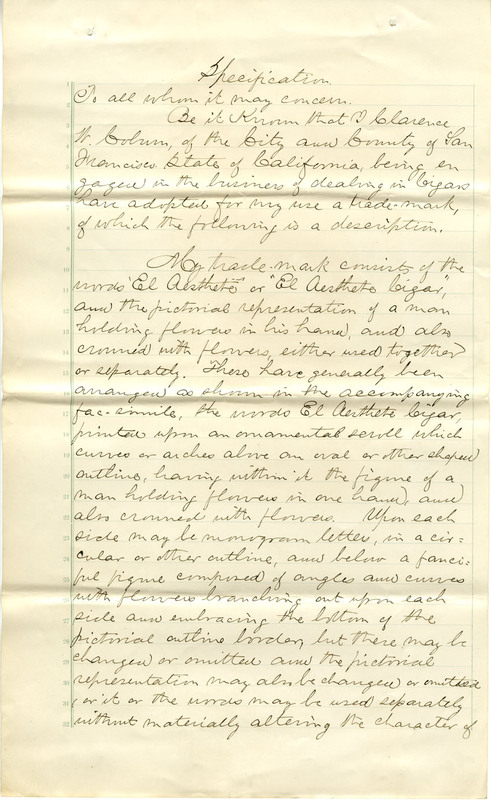 Specification
To all whom it may concern.
Be it Known that I Clarence
W. Coburn, of the City and County of San
Francisco State of California, being en
gaged in the business of dealing in Cigars
have adopted for my use a trade-mark,
of which the following is a description.
My trade-mark consists of the
words "El Aesthete" or "El Aesthete Cigar",
and the pictorial representation of a man
holding flowers in his hand, and also
crowned with flowers, either used together
or separately. These have generally been
arranged as shown in the accompanying
fac-simile, the words El Aesthete Cigar,
printed upon an ornamental scroll which
curves or arches above an oval or other shaped
outline, having within it the figure of a
man holding flowers in one hand, and
also crowned with flowers. Upon each
side may be monogram letters, in a cir=
cular or other outline, and below a fanci=
ful figure composed of angles and curves
with flowers branching out upon each
side and embracing the bottom of the
pictorial outline border, but these may be
changed or omitted and the pictorial
representation may also be changed or omitted
, or it or the words may be used separately
without materially altering the character of